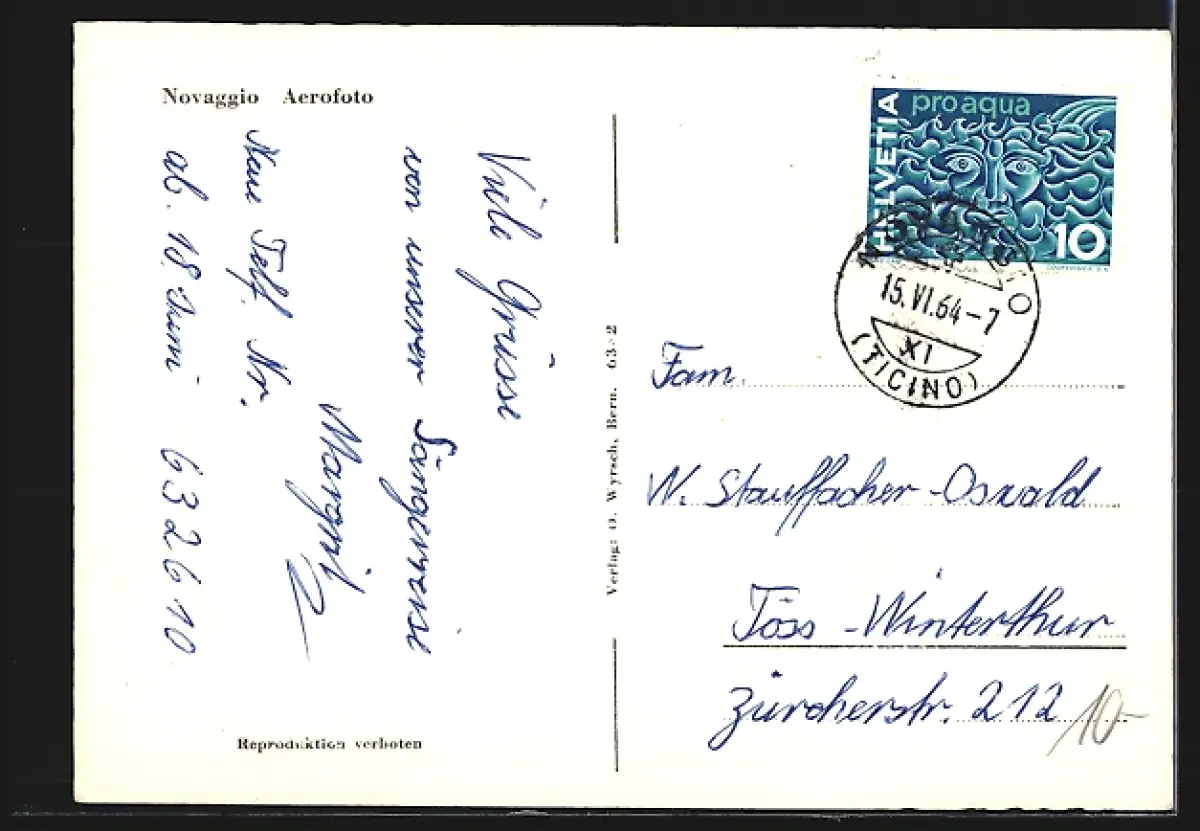 Novaggio Aerofoto
Viele Grüsse
von unserer Sängerreise
Margrit
Neue Telf. Nr.
ab. 18. Juni 63 26 10
Reproduktion verboten
Verlag: O. Wyrsch, Bern. 63-2
HELVETIA
pro aqua
10
NOVAGGIO
15.VI.64-7
XI
(TICINO)
Fam.
W. Stauffacher-Oswald
Töss-Winterthur
Zürcherstr. 212
10-